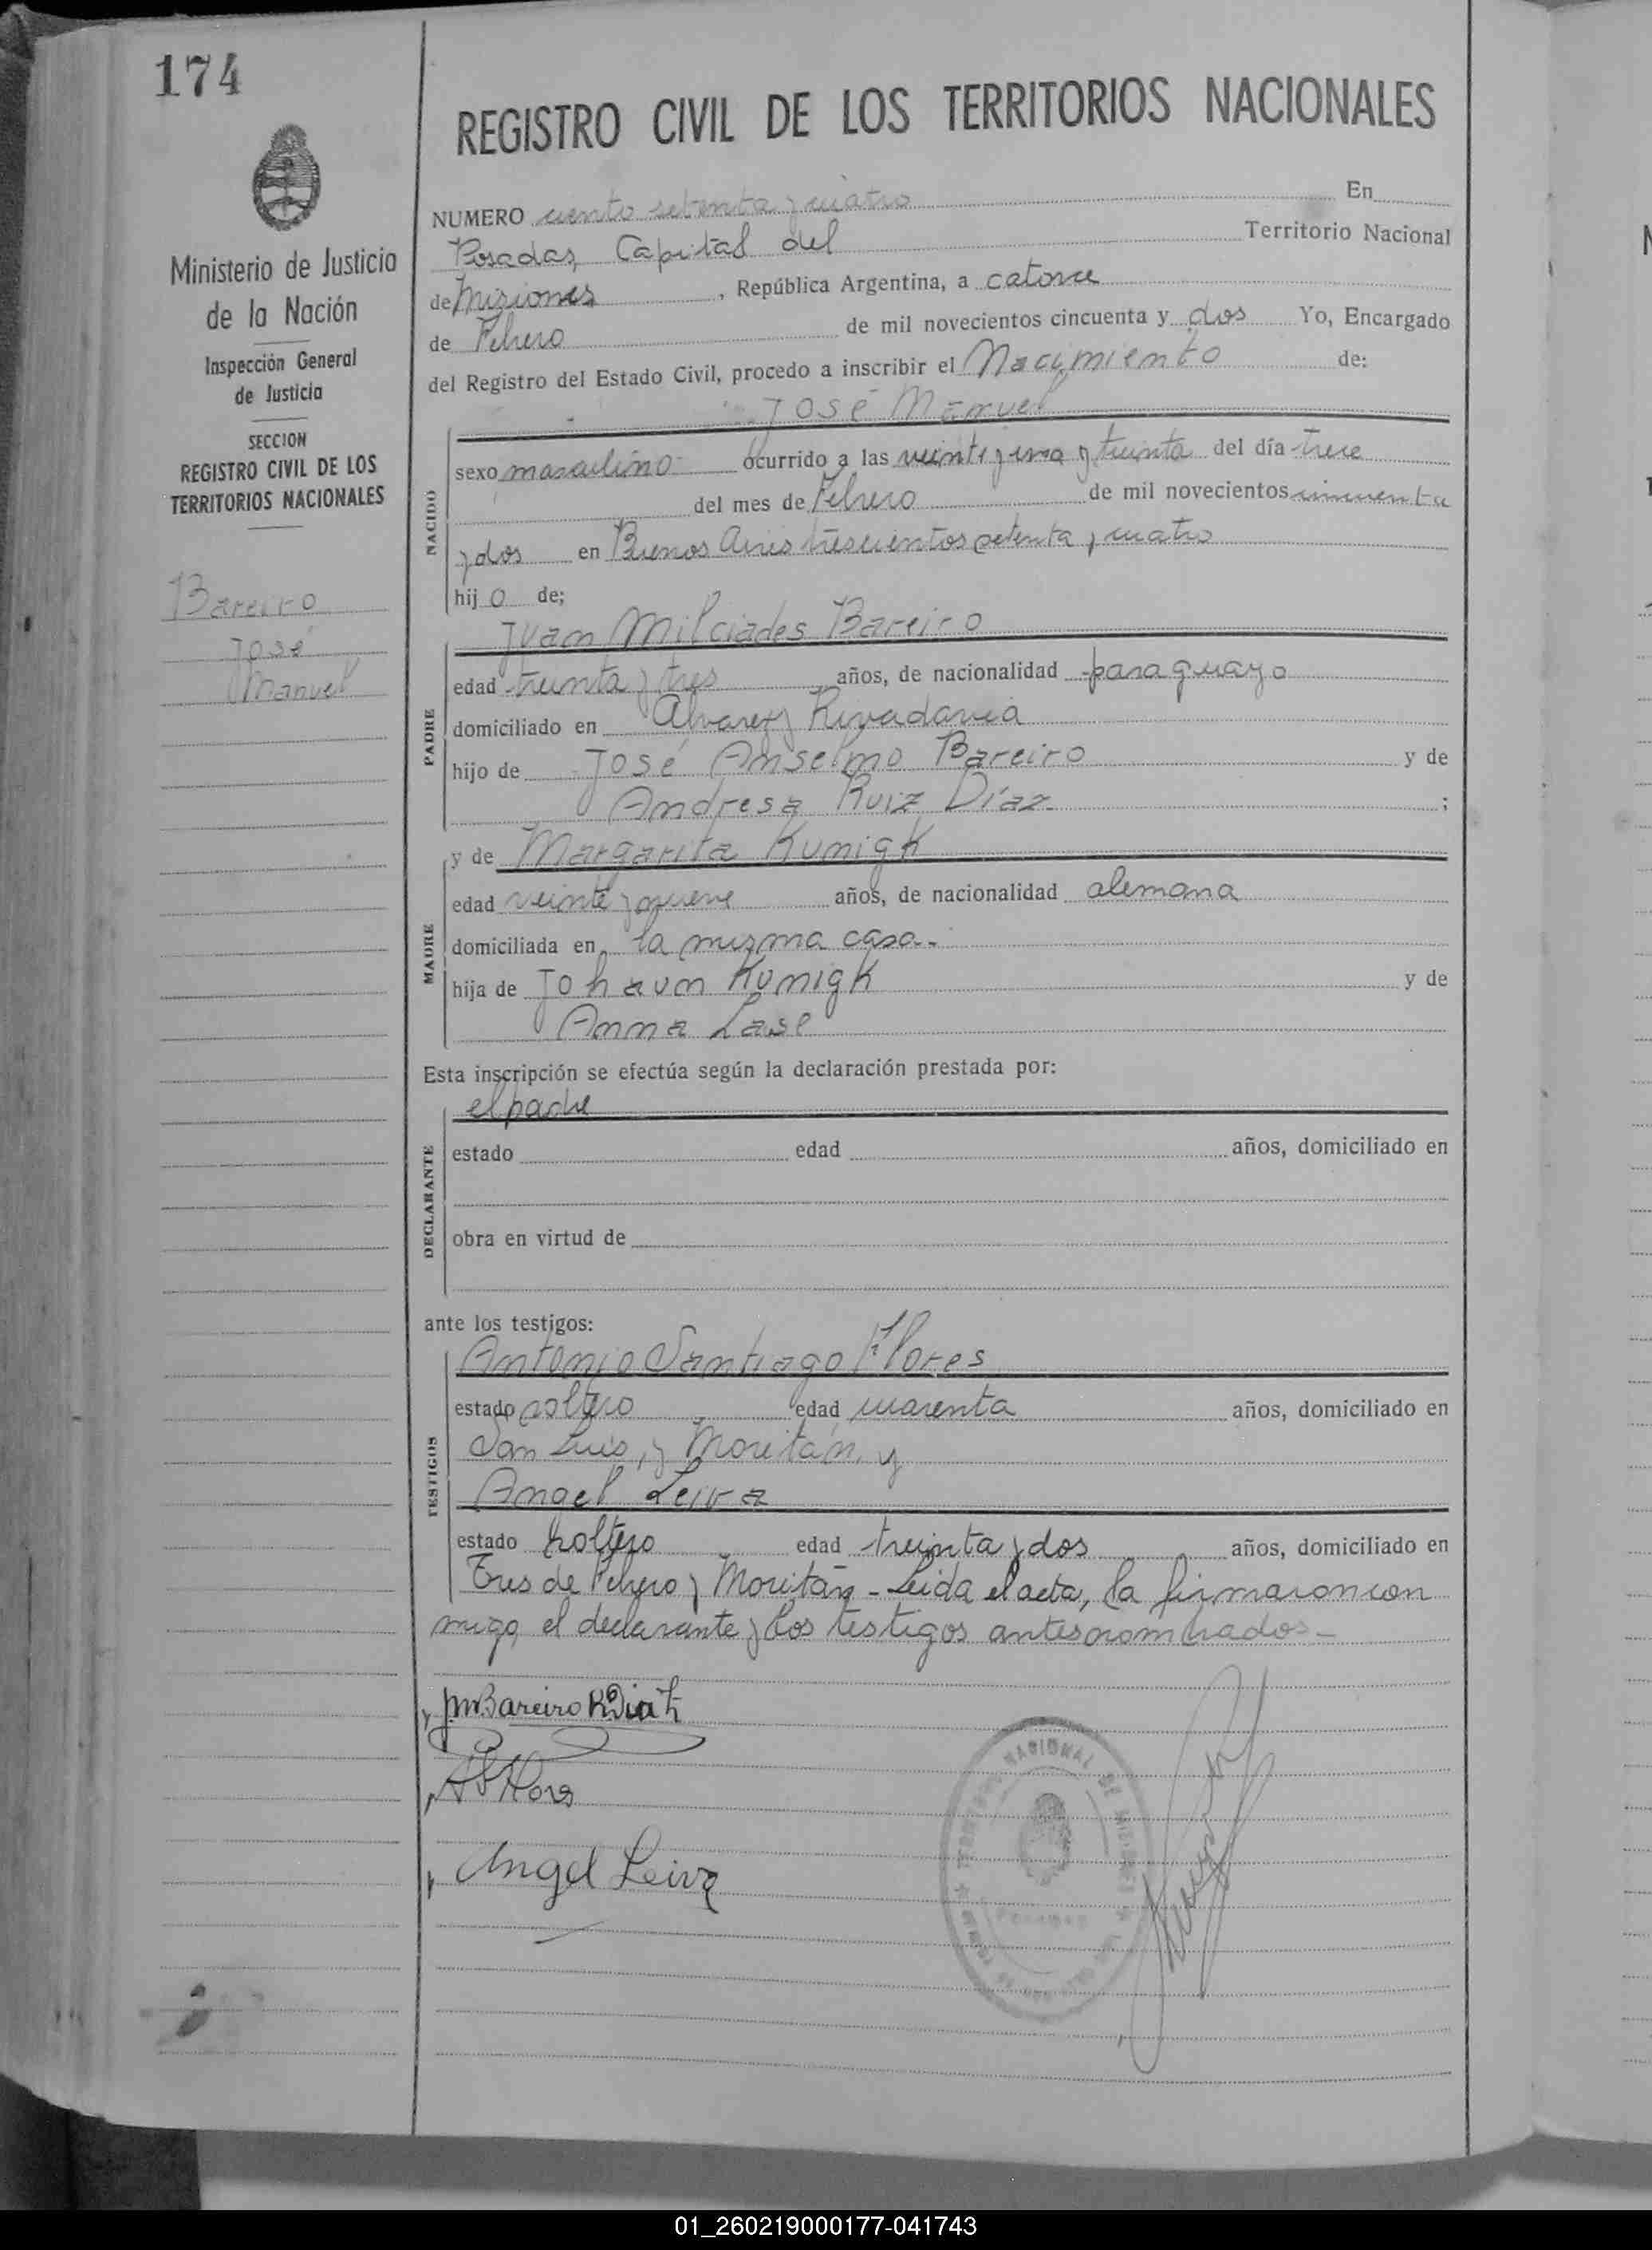 174
REGISTRO CIVIL DE LOS TERRITORIOS NACIONALES
Ministerio de Justicia
de la Nación
Inspección General
de Justicia
SECCION
REGISTRO CIVIL DE LOS
TERRITORIOS NACIONALES
Bareiro
José
Manuel
NUMERO ciento setenta y cuatro En
Posadas, Capital del Territorio Nacional
de Misiones, República Argentina, a catorce
de Febrero de mil novecientos cincuenta y dos Yo, Encargado
del Registro del Estado Civil, procedo a inscribir el Nacimiento de:
José Manuel
NACIDO
sexo masculino ocurrido a las veinte y una y treinta del día trece
del mes de Febrero de mil novecientos cincuenta
y dos en Buenos Aires trescientos setenta y cuatro
hijo de;
Juan Milciades Bareiro
PADRE
edad treinta y tres años, de nacionalidad paraguayo
domiciliado en Alvarez y Rivadavia
hijo de José Anselmo Bareiro y de
Andresa Ruiz Díaz ;
y de Margarita Kunigk
MADRE
edad veinte y nueve años, de nacionalidad alemana
domiciliada en la misma casa.
hija de Johaun Kunigk y de
Anna Lasl
Esta inscripción se efectúa según la declaración prestada por:
el padre
DECLARANTE
estado edad años, domiciliado en
obra en virtud de
ante los testigos:
Antonio Santiago Flores
TESTIGOS
estado soltero edad cuarenta años, domiciliado en
San Luis, y Moritán, y
Angel Leiva
estado soltero edad treinta y dos años, domiciliado en
Tres de Febrero y Moritán - Leida el acta, la firmaron con
migo, el declarante y los testigos antes nombrados -
JMBareiro RDiaz
Flores
Angel Leiva
NACIONAL DE MISIONES
01_260219000177-041743